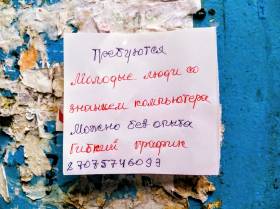 Требуются
Молодые люди со
знанием компьютера
Можно без опыта
Гибкий график
87075746099